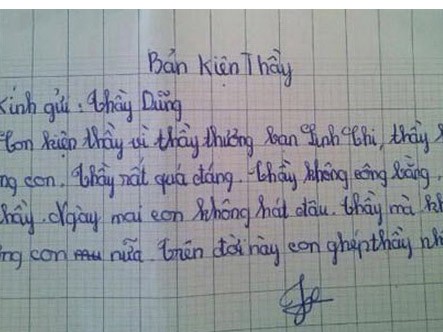 Bản Kiện Thầy
Kính gửi: thầy Dũng
Con kiện thầy vì thầy thương bạn Linh Chi, thầy
ng con. thầy rất quá đáng. thầy không công bằng.
thầy. Ngày mai con không hát đâu. thầy mà kh
ng con nữa. trên đời này con ghép thầy nh